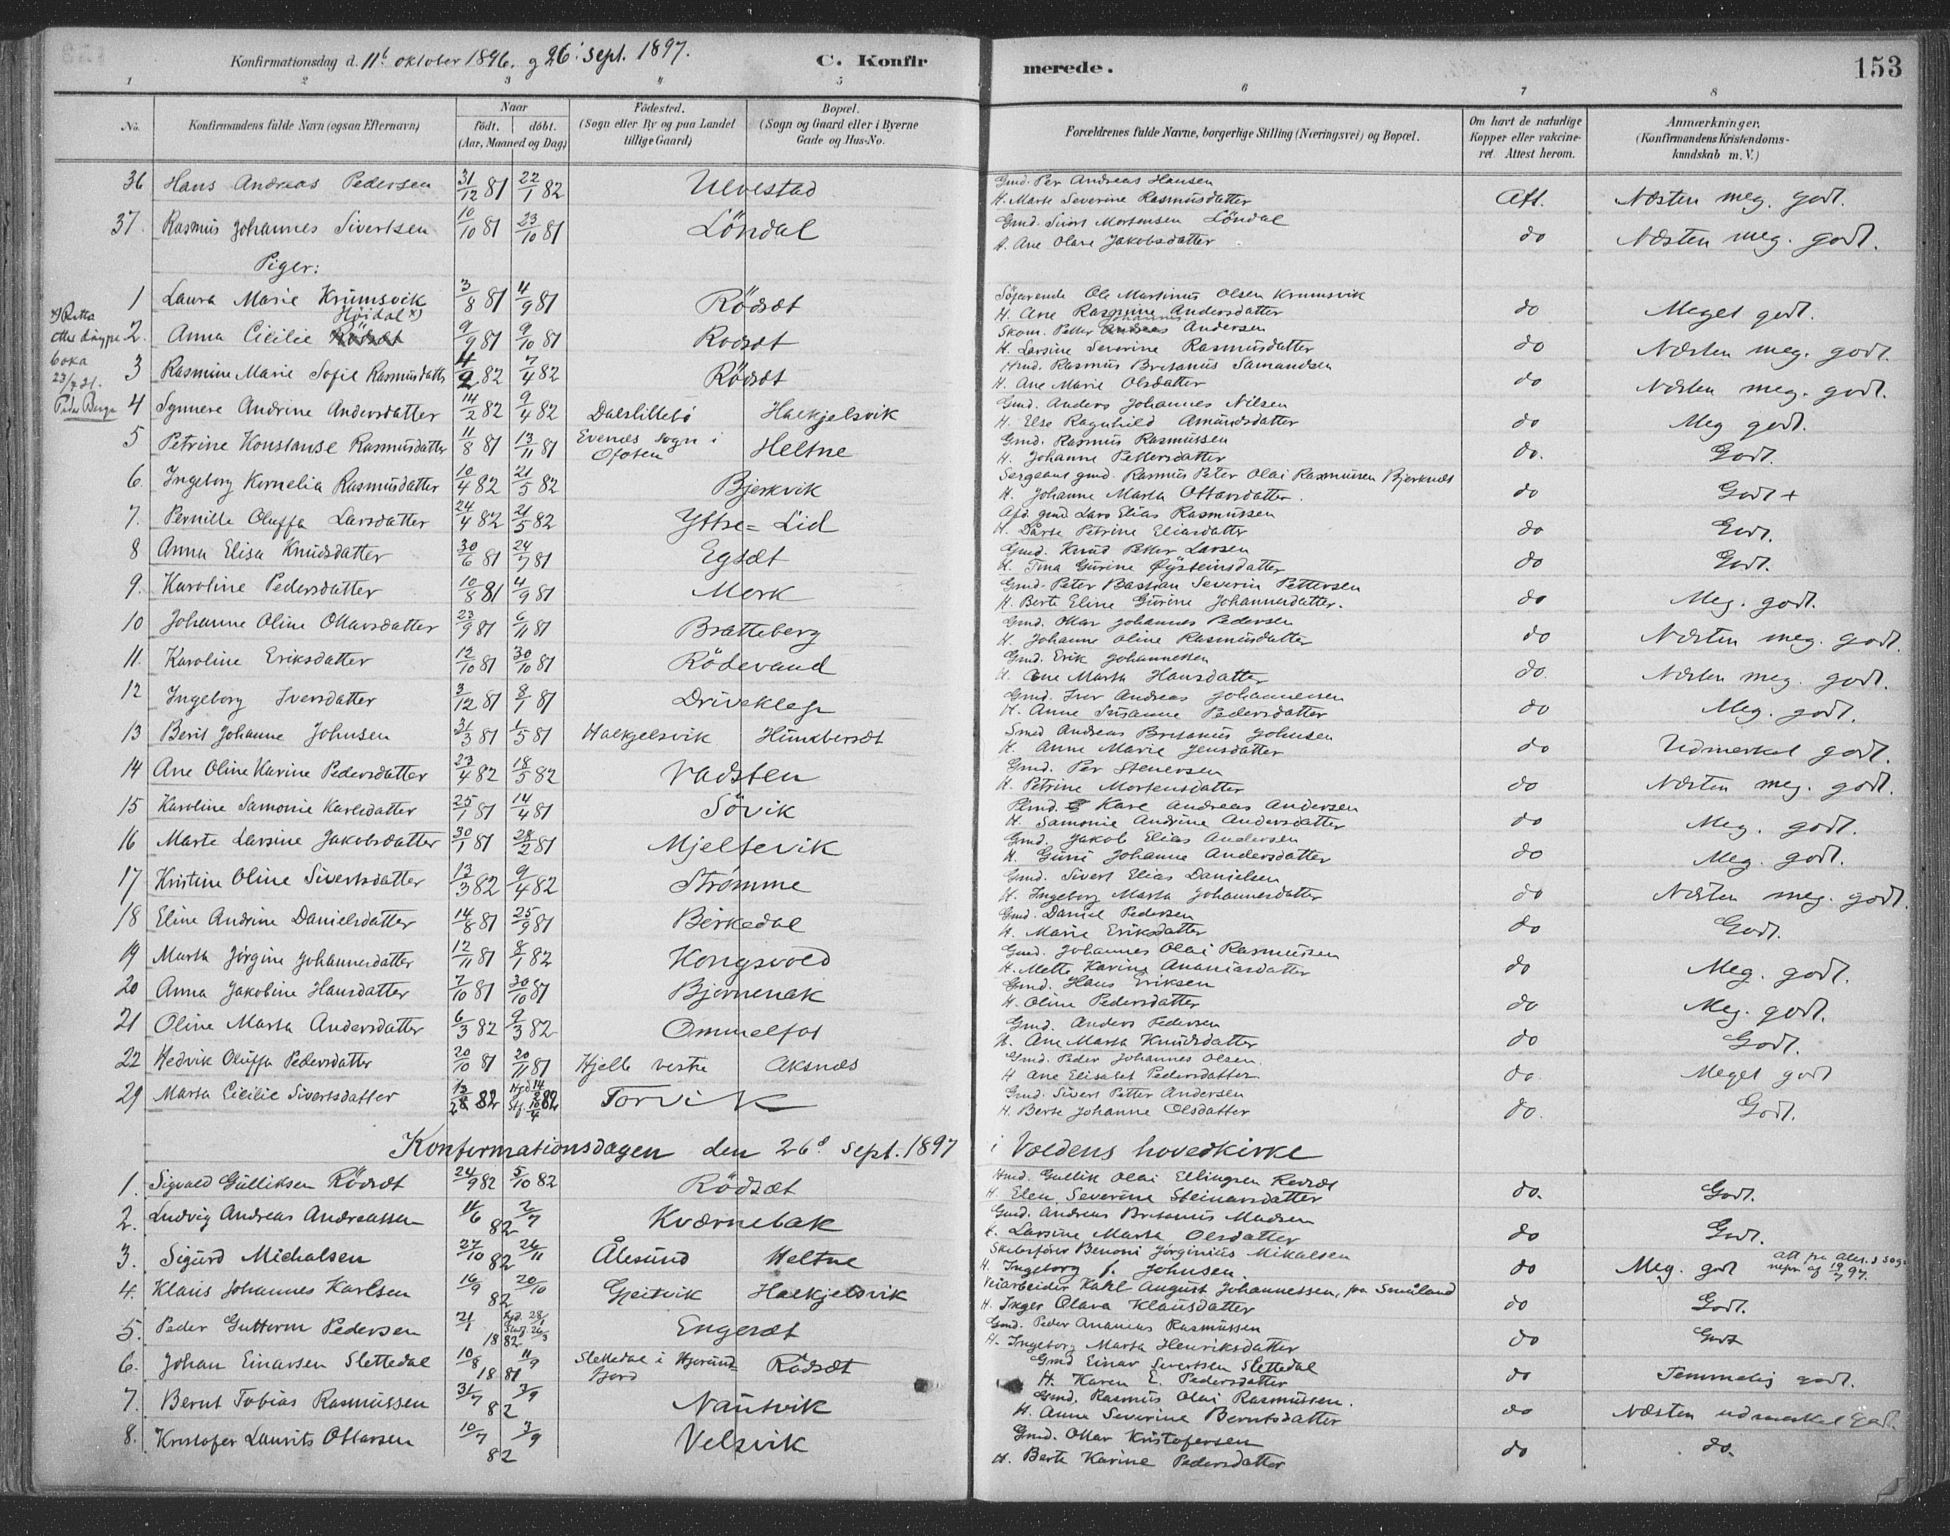 Konfirmationsdag d. 11te oktober 1896. og 26. sept. 1897. C. Konfir merede. 153
1 2 3 4 5 6 7 8
No. Konfirmandens fulde Navn (ogsaa Efternavn) Naar født. døbt. (Aar, Maaned og Dag) Fødested. (Sogn eller By og paa Landet tillige Gaard) Bopæl. (Sogn og Gaard eller i Byerne Gade og Hus-No. Forældrenes fulde Navne, borgerlige Stilling (Næringsvei) og Bopæl. Om havt de naturlige Kopper eller vakcineret. Attest herom. Anmærkninger. (Konfirmandens Kristendomskundskab m. V.)
36 Hans Andreas Pedersen 31/12 81 22/1 82 Ulvestad Gmd. Per Andreas Hansen H. Marte Severine Rasmusdatter Att. Næsten meg. godt.
37. Rasmus Johannes Sivertsen 10/10 81 23/10 81 Löndal Gmd. Sivert Mortensen Löndal H. Ane Olave Jakobsdatter do Næsten meg. godt.
Piger:
1 Laura Marie Krumsvik 3/8 81 4/9 81 Rödsæt Söfarende Ole Martinus Olsen Krumsvik H. Ane Rasmine Andersdatter do Meget godt.
x) Retta etter dåypeboka 23/7 31. Peder Berge
2. Anna Cicilie Rödsæt Höidal x) 9/9 81 9/10 81 Rodsæt Skom. Petter Andreas Johannes Andersen H. Larsine Severine Rasmusdatter do Næsten meg. godt.
3 Rasmine Marie Sofie Rasmusdatter 4/2 82 7/4 82 Rödsæt Hmd. Rasmus Britanus Samandsen H. Ane Marie Olsdatter do Næsten meg. godt.
4 Synnere Andrine Andersdatter 14/2 82 9/4 82 Dalslittebö Haekjelsvik Gmd. Anders Johannes Nilsen H. Else Ragnhild Amundsdatter do Meg godt.
5 Petrine Konstanse Rasmusdatter 11/8 81 13/11 81 Evenes sogn i Ofoten Heltne Gmd. Rasmus Rasmussen H. Johanne Pettersdatter do. Godt.
6. Ingeborg Kornelia Rasmusdatter 10/4 82 21/5 82 Bjerkvik Sergeant gmd. Rasmus Peter Olai Rasmussen Bjerknes H. Johanne Marta Ottarsdatter. do Godt +
7. Pernille Oluffa Larsdatter 24/4 82 21/5 82 Yttre= Lid Afd. gmd Lars Elias Rasmussen H. Dorte Petrine Eliasdatter do Godt.
8 Anna Elisa Knudsdatter 30/6 81 24/7 81 Egsæt Gmd. Knud Petter Larsen H. Tina Gurine Öysteinsdatter do Godt.
9. Karoline Pedersdatter 10/8 81 4/9 81 Mork Gmd. Peter Bastian Severin Pettersen H. Berte Eline Gurine Johannesdatter. do Meg. godt.
10 Johanne Oline Ottarsdatter 23/9 81 6/11 81 Bratteberg Gmd. Ottar Johannes Pedersen H. Johanne Oline Rasmusdatter do Næsten meg. godt.
11. Karoline Eriksdatter 12/10 81 30/10 81 Rödevand Gmd. Erik Johannessen H. Ane Marta Hansdatter do. Næsten meg. godt.
12 Ingeborg Iversdatter 3/12 81 8/1 81 Driveklep Gmd. Iver Andreas Johannessen H. Anne Susanne Pedersdatter do Meg. godt.
13 Berit Johanne Johnsen 31/3 81 1/5 81 Haekjelsvik Humbersæt Smed Andreas Britanus Johnsen H. Anne Marie Jensdatter do Udmerket godt.
14 Ane Oline Karine Pedersdatter 23/4 82 18/5 82 Vadsten Gmd. Per Stenersen H. Petrine Mortensdatter do Næsten meg. godt.
15 Karoline Samonie Karlsdatter 25/1 81 14/4 81 Sövik Plmd. Karl Andreas Andersen H. Samonie Andrine Andersdatter do Meg. godt.
16 Marte Larsine Jakobsdatter 30/1 81 28/2 81 Mjeltevik Gmd. Jakob Elias Andersen H. Guni Johanne Andersdatter do Meg. godt.
17 Kristine Oline Sivertsdatter 13/3 82 9/4 82 Strömme Gmd. Sivert Elias Danielsen H. Ingeborg Marta Johannesdatter do Næsten meg. godt.
18 Eline Andrine Danielsdatter 14/8 81 25/9 81 Birkedal Gmd. Daniel Pedersen H. Marie Eriksdatter do Godt.
19 Marta Jörgine Johannesdatter 12/11 81 8/1 82 Kongsvold Gmd. Johannes Olai Rasmussen H. Mette Karine Ananiasdatter do Meg. godt.
20 Anna Jakobine Hansdatter 7/10 81 30/10 81 Björnenak Gmd. Hans Eriksen H. Oline Pedersdatter do Meg. godt.
21 Oline Marta Andersdatter 6/3 82 9/3 82 Ommelfot Gmd. Anders Pedersen H. Ane Marta Knudsdatter do Godt.
22 Hedvik Oluffa Pedersdatter 20/10 81 20/11 81 Hjelle vestre Aksnæs Gmd. Peder Johannes Olsen. H Ane Elisabet Pedersdatter do. Meget godt
29 Marta Cicilie Sivertsdatter 13/2 82 Hjd 14/2 Stf. 10/4 82 Torvik Gmd. Sivert Petter Andersen H. Berte Johanne Olsdatter do. Godt.
Konfirmationsdagen den 26de sept. 1897 i Voldens hovedkirke
1. Sigvald Gulliksen Rödsæt 24/9 82 5/10 82 Rödsæt Hmd. Gullik Olai Ellingsen Redsæt H. Elen Severine Steinarsdatter do. Godt.
2. Ludvig Andreas Andreassen 4/6 2/7 82 Kværnebak Gmd. Andreas Britanius Madsen H. Larsine Marta Olsdatter do Godt.
3. Sigurd Michalsen 27/10 26/11 82 Ålesund Heltne Skibsförer Benoni Jörginius Mikalsen H. Ingeborg f. Johnsen. do Meg. godt att fra Ales.s sogneprs. af 19/7 97.
4. Klaus Johannes Karlsen 16/9 20/10 82 Gjeitvik Haekjelsvik Veiarbeider Karl August Johannessen, fra Småland H. Inger Olava Klausdatter do Godt.
5. Peder Guttorm Pedersen 21/1 Hjd. 28/1 Stad. 26/3 1882 Engesæt Gmd. Peder Ananias Rasmussen H. Ingeborg Marta Henriksdatter do Godt
6. Johan Einarsen Slettedal 10/8 11/9 1881 Slettedal i Hjørundfjord Rödsæt Gmd Einar Sivertsen Slettedal H. Karen E. Pedersdatter do Temmelig godt.
7. Bernt Tobias Rasmussen 31/7 3/9 82 Nautvik Gmd. Rasmus Olai Rasmussen. H. Anne Severine Berntsdatter do Næsten udmerket godt.
8. Kristofer Laurits Ottarsen 10/7 3/9 82 Velsvik Gmd. Ottar Kristofersen H. Berte Karine Pedersdatter do do.